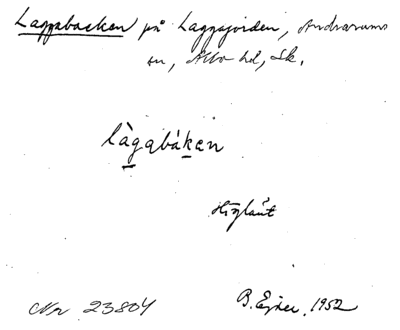 Laggabacken på Laggajorden, Andrarums
sn, Albo hd, Sk.
làgabáken
Nr 23804
B. Ejder. 1952